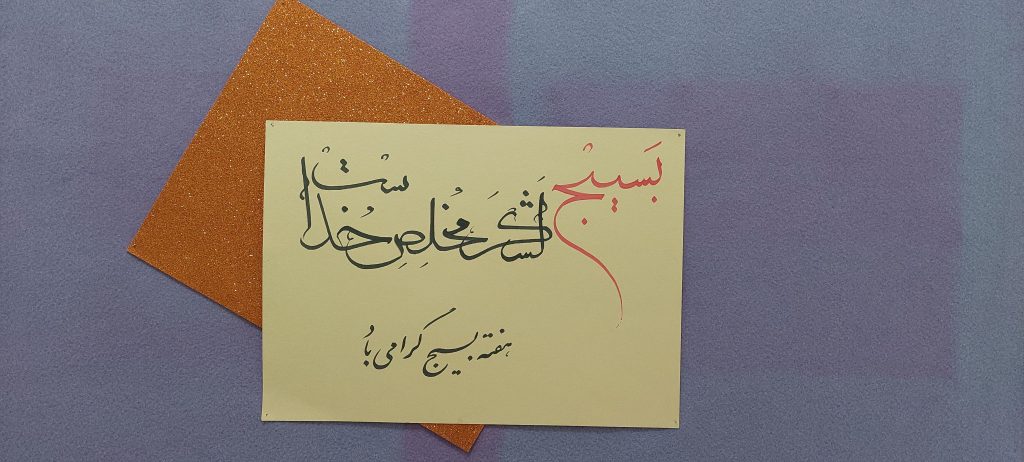 بَسیْج لَشکَرِ مُخلِصِ خُداسْتْ
هفته بسیج گرامی بادُ